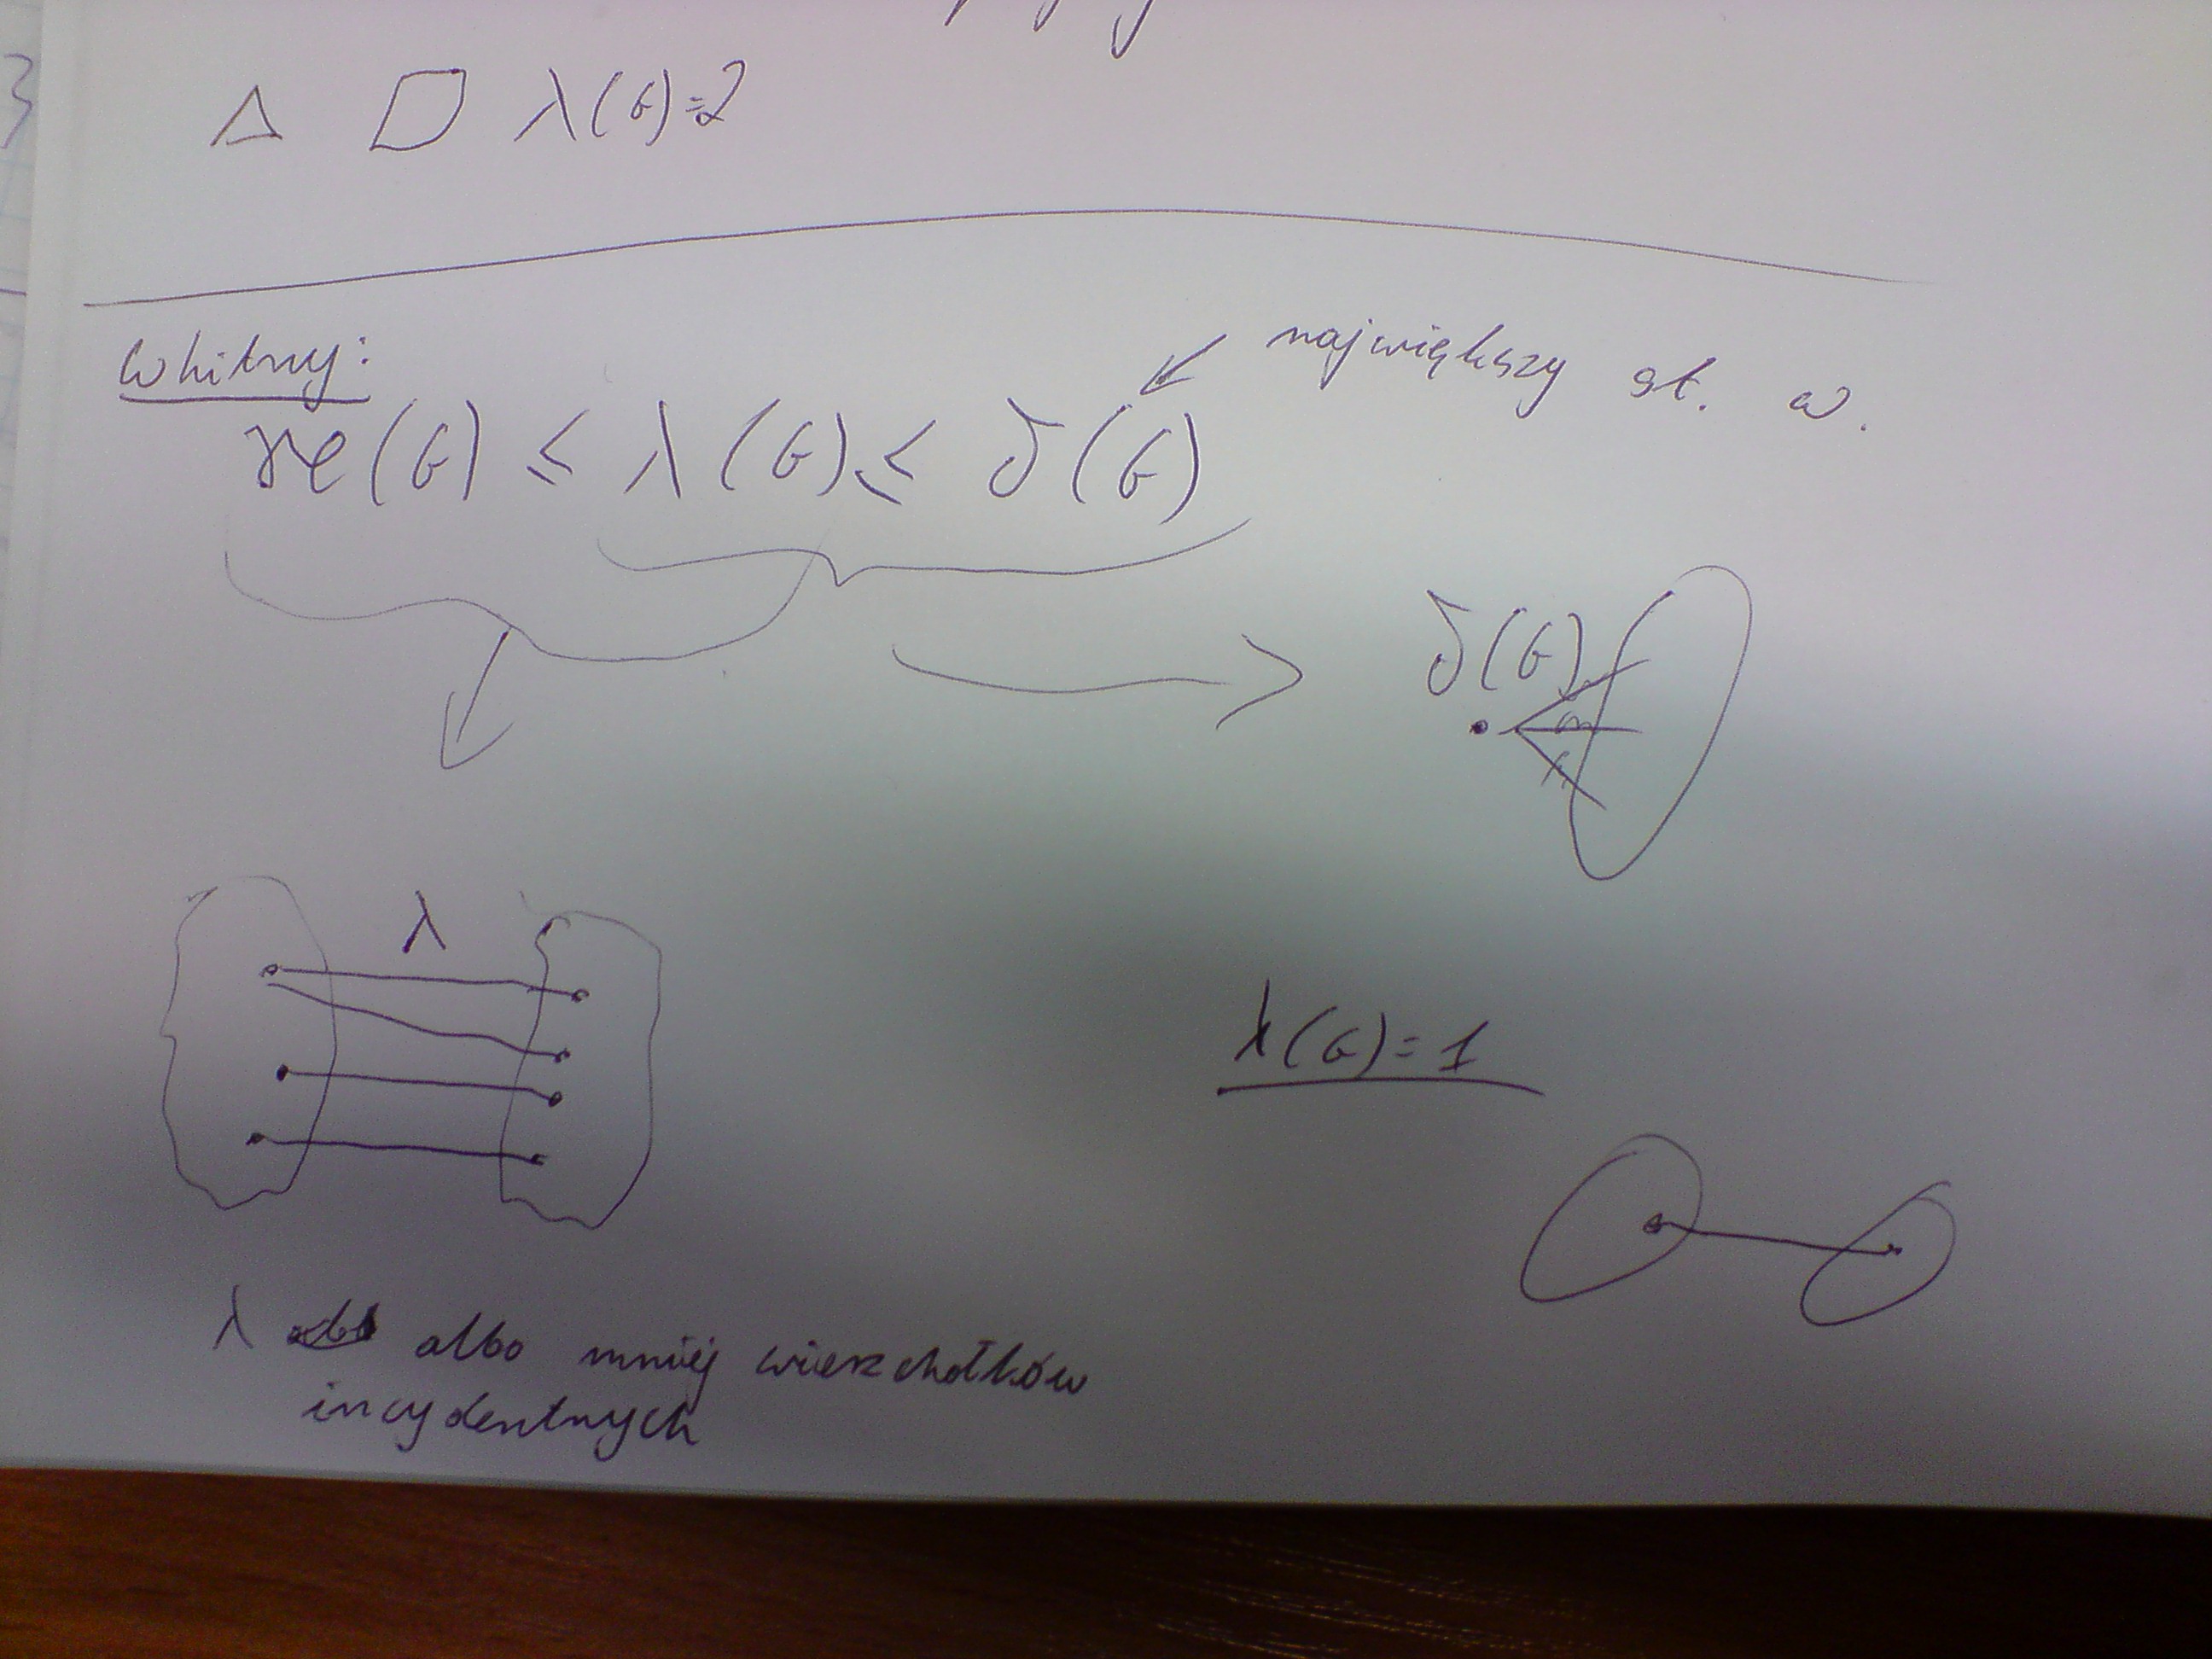 λ(G)=2
Whitny:
największy st. w.
æ(G) ≤ λ(G) ≤ δ(G)
δ(G)
λ
λ(G)=1
λ albo mniej wierzchołków
incydentnych